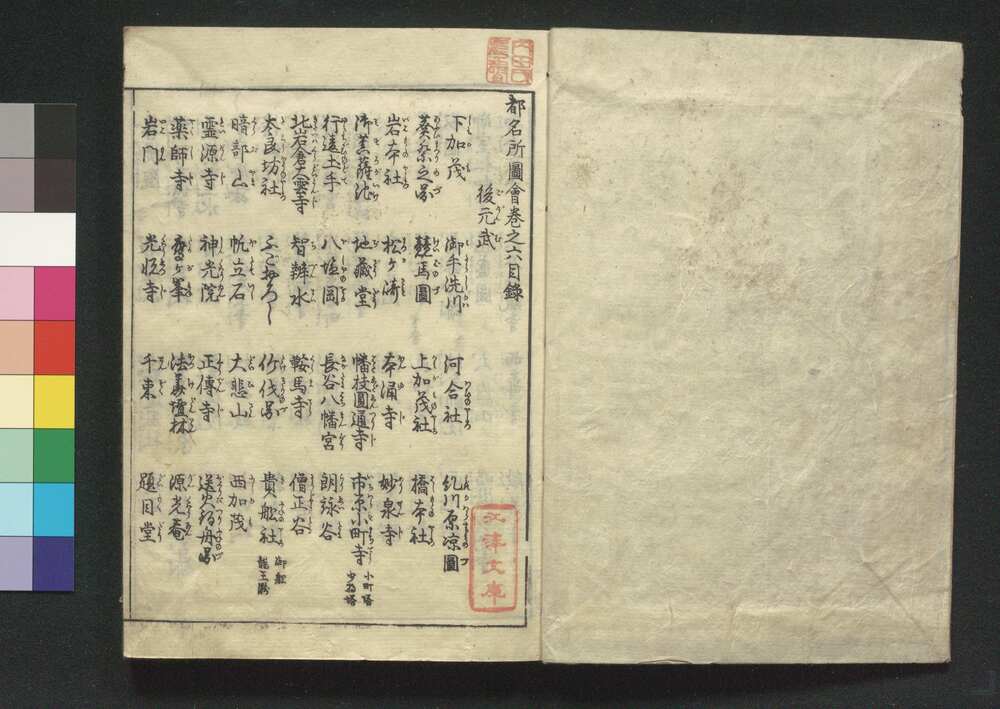 都名所圖會巻之六目録
後元武
下加茂 御手洗川 河合社 糺川原凉圖
葵祭之図 競馬圖 上加茂社 橋本社
岩本社 松ヶ﨑 本涌寺 妙泉寺
御菩薩池 地蔵堂 幡枝圓通寺 市原小町寺 小町塔 少将塔
行違土手 八塩岡 長谷八幡宮 朗詠谷
北岩倉大雲寺 智辨水 鞍馬寺 僧正谷
太良坊社 ふごおろし 竹伐図 貴舩社 御舩 龍王瀧
暗部山 帆立石 大悲山 西加茂
霊源寺 神光院 正傳寺 送火
薬師寺 鷹ヶ峯 法華檀林 源光菴
岩門 光悦寺 千束 題目堂